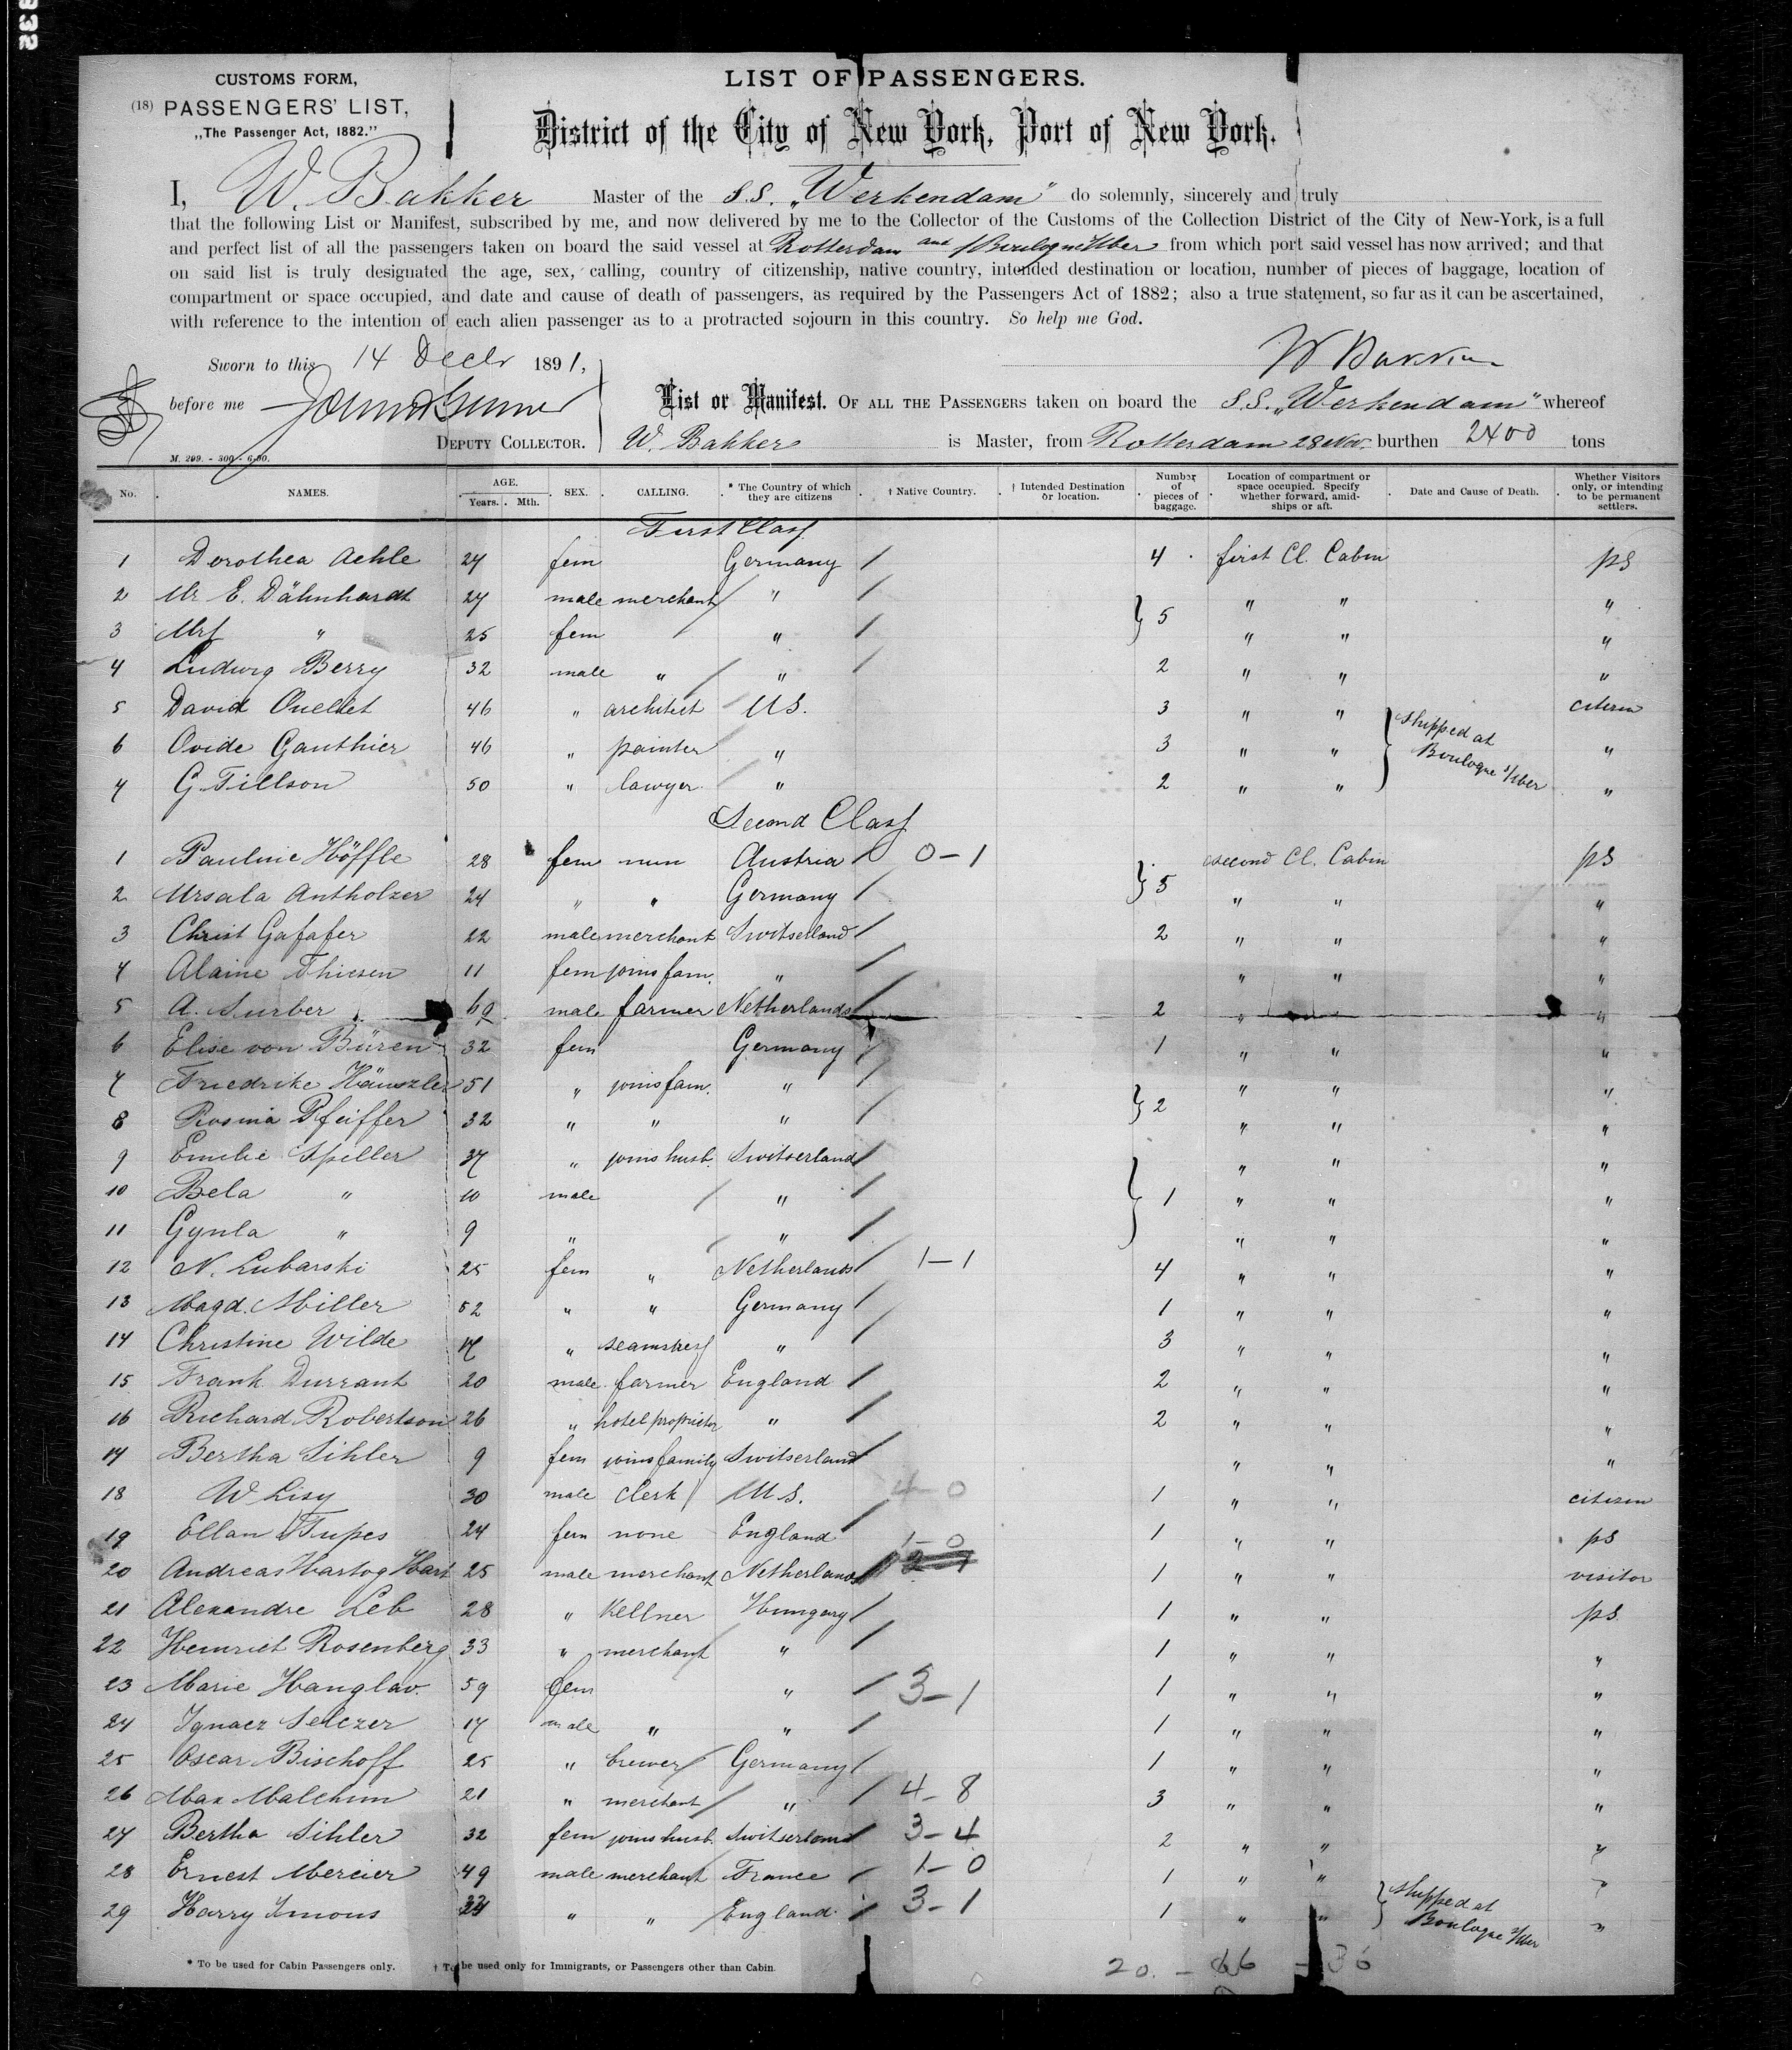 332
CUSTOMS FORM,
(18) PASSENGERS' LIST,
„The Passenger Act, 1882.”
LIST OF PASSENGERS.
District of the City of New York, Port of New York.
I, W. Bakker Master of the S.S. „Werkendam” do solemnly, sincerely and truly
that the following List or Manifest, subscribed by me, and now delivered by me to the Collector of the Customs of the Collection District of the City of New-York, is a full
and perfect list of all the passengers taken on board the said vessel at Rotterdam and Boulogne s/Mer from which port said vessel has now arrived; and that
on said list is truly designated the age, sex, calling, country of citizenship, native country, intended destination or location, number of pieces of baggage, location of
compartment or space occupied, and date and cause of death of passengers, as required by the Passengers Act of 1882; also a true statement, so far as it can be ascertained,
with reference to the intention of each alien passenger as to a protracted sojourn in this country. So help me God.
W Bakker
Sworn to this 14 Decbr 1891,
before me
DEPUTY COLLECTOR.
M. 299. - 300 - 6-90.
List or Manifest. OF ALL THE PASSENGERS taken on board the S.S. „Werkendam” whereof
W. Bakker is Master, from Rotterdam 28 Nov. burthen 2400 tons
No. NAMES. AGE. Years. Mth. SEX. CALLING. * The Country of which they are citizens † Native Country. † Intended Destination or location. Number of pieces of baggage. Location of compartment or space occupied. Specify whether forward, amid-ships or aft. Date and Cause of Death. Whether Visitors only, or intending to be permanent settlers.
First Class
1 Dorothea Aehle 27 fem Germany / 4 first Cl. Cabin ps
2 Mr E. Dähnhardt 27 male merchant " / } 5 " " "
3 Mrs " 25 fem " / " " "
4 Ludwig Berry 32 male " " / 2 " " "
5 David Ouellet 46 " architect U.S. 3 " " citizen
6 Ovide Gauthier 46 " painter " 3 " " } shipped at Boulogne s/Mer "
7 G. Tillson 50 " lawyer " 2 " " "
Second Class
1 Pauline Höffle 28 fem nun Austria / 0-1 } 5 second Cl. Cabin ps
2 Ursala Antholzer 24 " " Germany / " " "
3 Christ Gafafer 22 male merchant Switserland / 2 " " "
4 Alaine Thiesen 11 fem joins fam. " / " " "
5 A. Surber 69 male farmer Netherlands / 2 " "
6 Elise von Büren 32 fem Germany / 1 " " "
7 Friedrike Häuszler 51 " joins fam. " / } 2 " " "
8 Rosina Pfeiffer 32 " " " / " " "
9 Emilie Spiller 37 " joins husb. Switserland / } 1 " " "
10 Bela " 10 male " / " " "
11 Gynla " 9 " " / " " "
12 N. Lubarski 25 fem " Netherlands / 1-1 4 " " "
13 Magd. Miller 52 " " Germany / 1 " " "
14 Christine Wilde 17 " seamstress " / 3 " " "
15 Frank Durrant 20 male farmer England / 2 " " "
16 Richard Robertson 26 " hotel proprietor " / 2 " " "
17 Bertha Sihler 9 fem joins family Switserland / " " "
18 W Lisy 30 male clerk U.S. 4-0 1 " " citizen
19 Ellan Tupes 24 fem none England / 1-0 1 " " ps
20 Andreas Hartog Hart 25 male merchant Netherlands / 1 " " visitor
21 Alexandre Leb 28 " Kellner Hungary / 1 " " ps
22 Heinrich Rosenberg 33 " merchant " / 1 " " "
23 Marie Hanglav. 59 fem " / 3-1 1 " " "
24 Ignacz Selczer 17 male " " / 1 " " "
25 Oscar Bischoff 25 " brewer Germany / 1 " " "
26 Max Malchim 21 " merchant " / 4-8 3 " " "
27 Bertha Sihler 32 fem joins husb. Switserland / 3-4 2 " " "
28 Ernest Mercier 49 male merchant France / 1-0 1 " " } shipped at Boulogne s/Mer "
29 Harry Imous " " England / 3-1 1 " " "
* To be used for Cabin Passengers only. † To be used only for Immigrants, or Passengers other than Cabin.
20. - 66 - 36